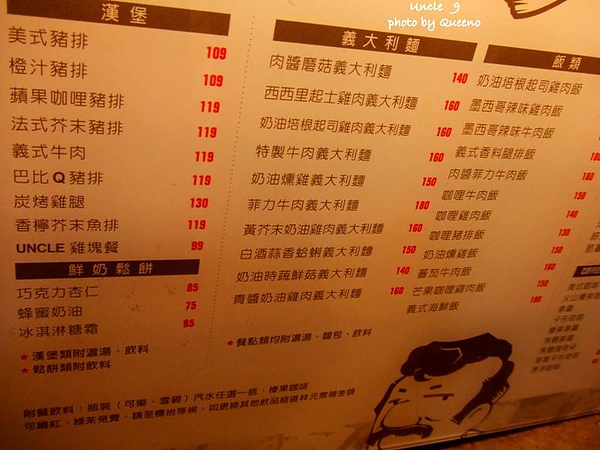 Uncle 9
photo by Queeno
漢堡
美式豬排 109
橙汁豬排 109
蘋果咖哩豬排 119
法式芥末豬排 119
義式牛肉 119
巴比Q豬排 119
炭烤雞腿 130
香檸芥末魚排 119
UNCLE 雞塊餐 99
鮮奶鬆餅
巧克力杏仁 85
蜂蜜奶油 75
冰淇淋糖霜 65
★漢堡類附濃湯、飲料
★鬆餅類附飲料
義大利麵
肉醬磨菇義大利麵 140
西西里起士雞肉義大利麵 160
奶油培根起司雞肉義大利麵 160
特製牛肉義大利麵 160
奶油燻雞義大利麵 150
菲力牛肉義大利麵 160
黃芥末奶油雞肉義大利麵 160
白酒蒜香蛤蜊義大利麵 150
奶油時蔬鮮菇義大利麵 140
青醬奶油雞肉義大利麵 160
★餐點類均附濃湯、麵包、飲料
飯類
奶油培根起司雞肉飯
墨西哥辣味雞肉飯
墨西哥辣味牛肉飯
義式香料腿排飯
肉醬菲力牛肉飯
咖哩牛肉飯
咖哩雞肉飯
咖哩豬排飯
奶油燻雞飯
蕃茄牛肉飯
芒果咖哩雞肉飯
義式海鮮飯
附餐飲料：瓶裝（可樂、雪碧）汽水任選一瓶、榛果咖啡
可續紅、綠茶免費，請至櫃抬等候，如更換其他飲品超過35元需補差額